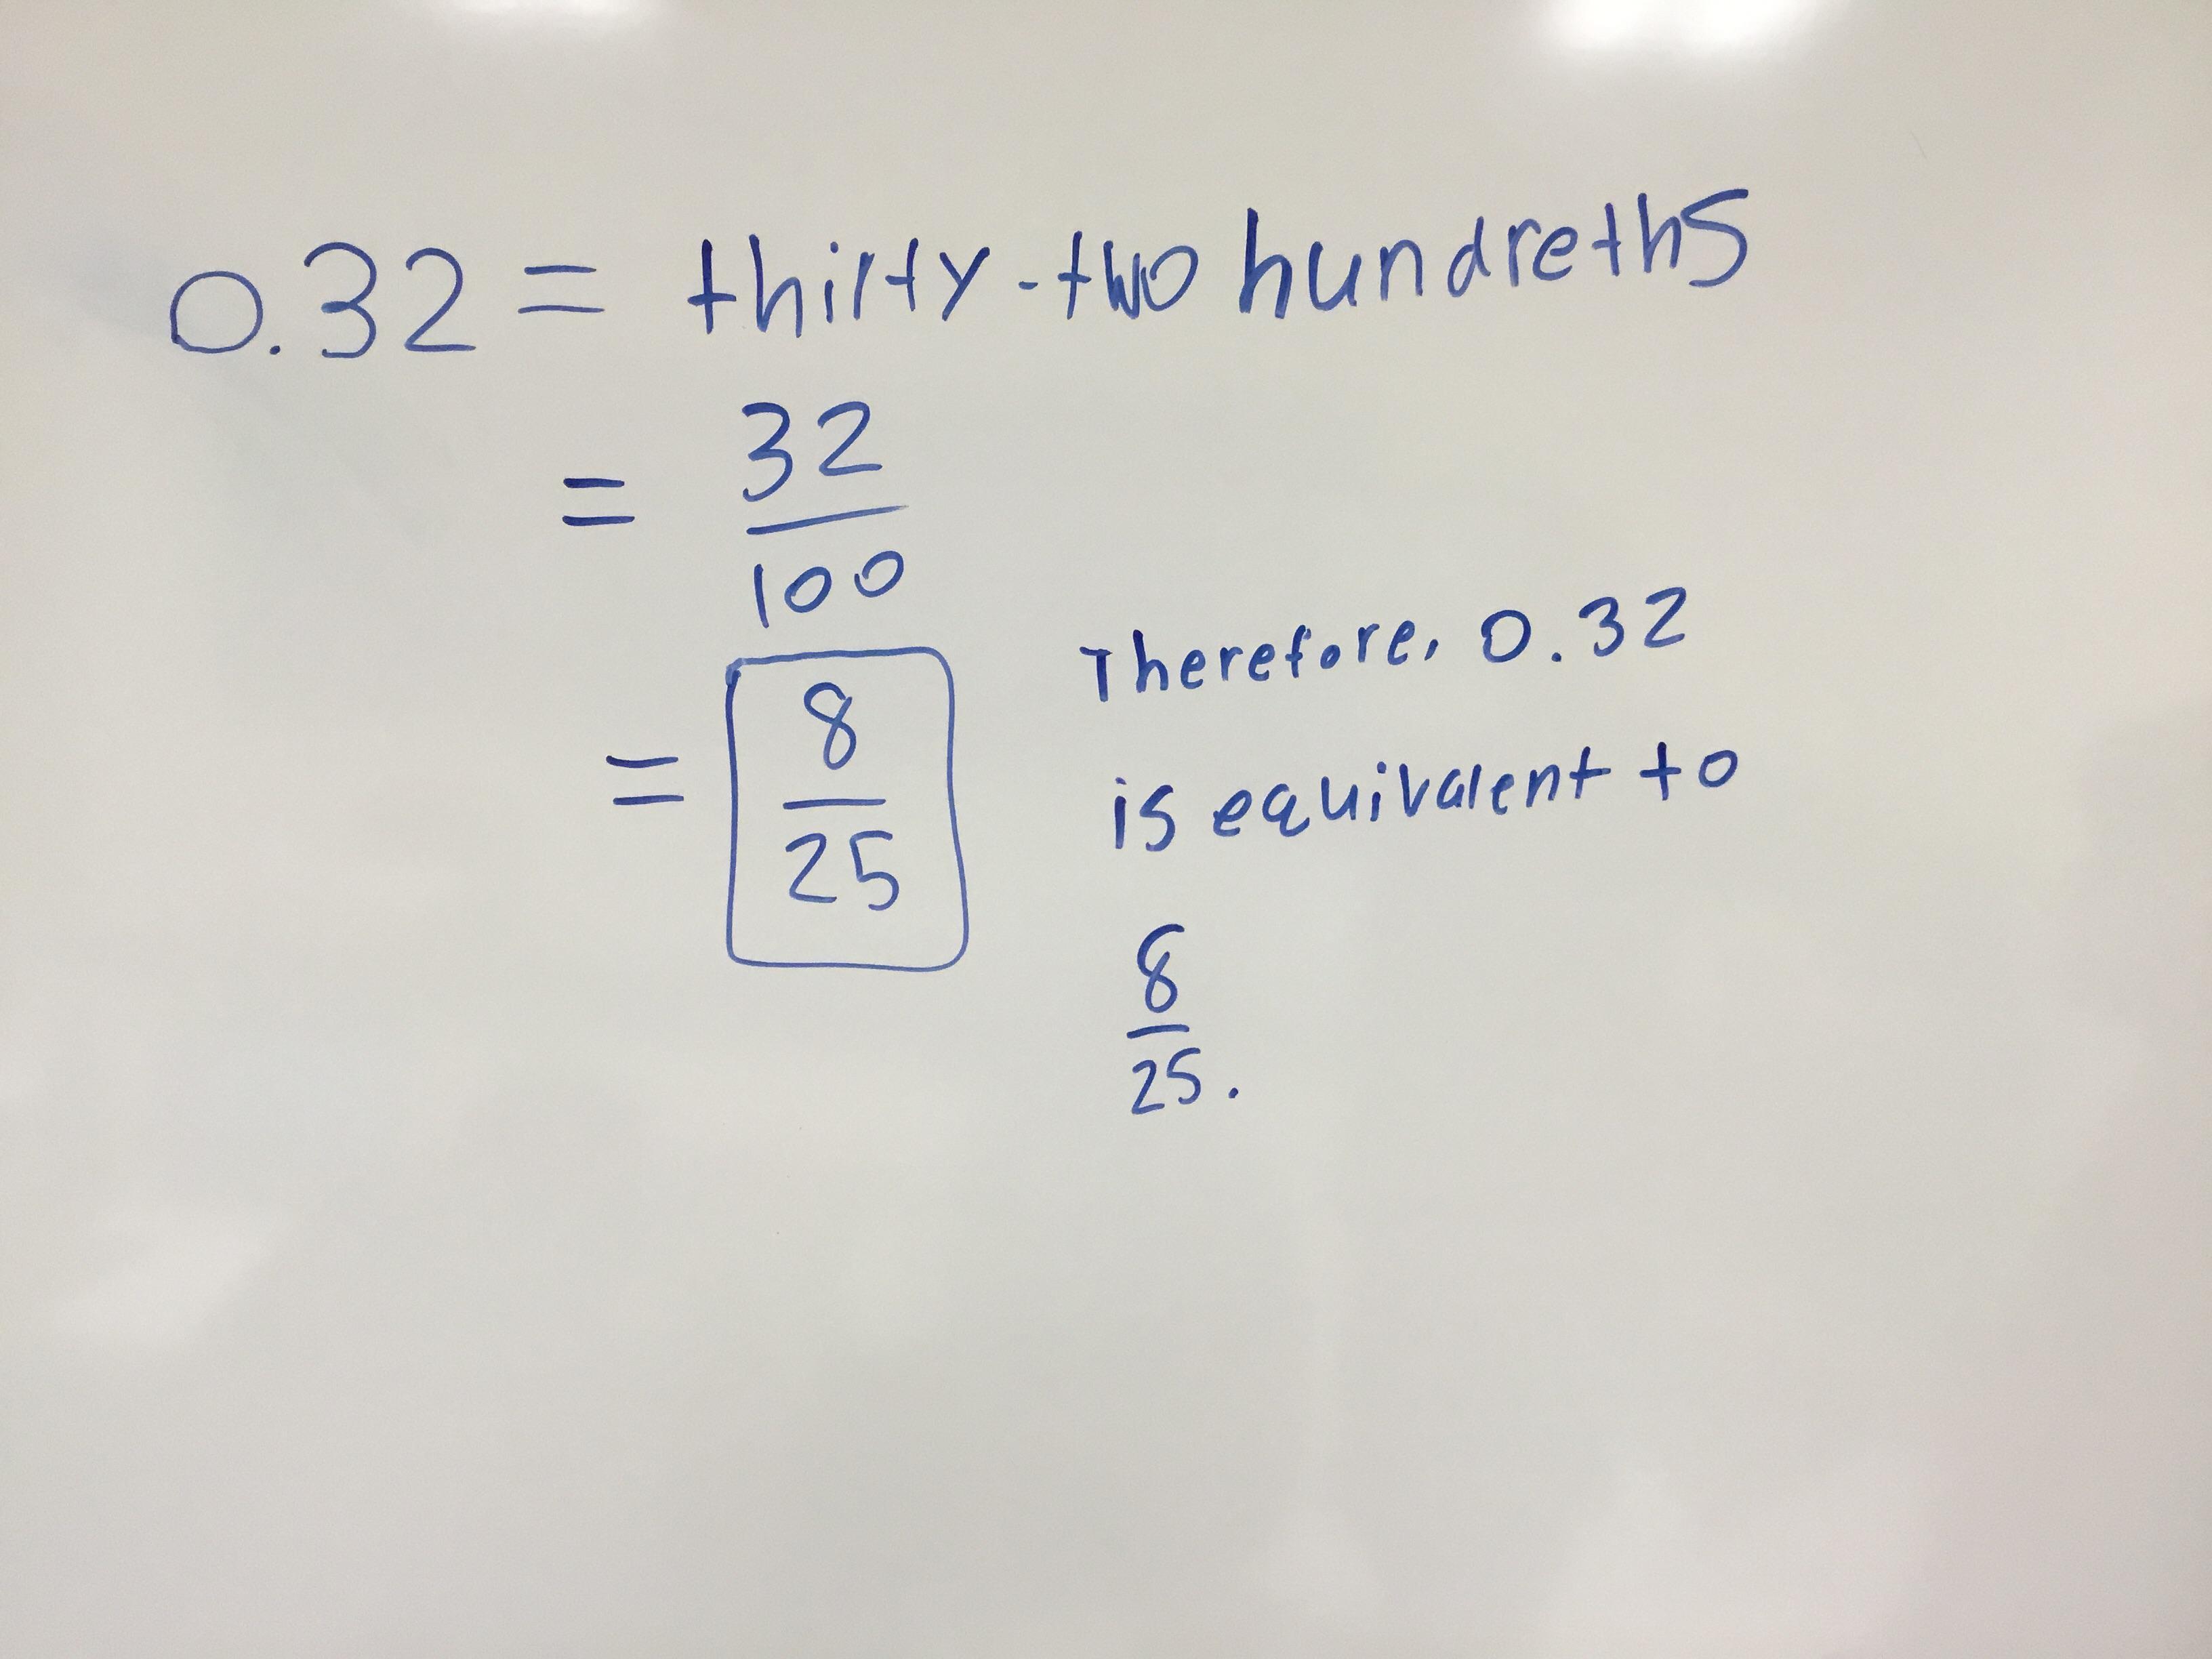 0.32 = thirty-two hundreths
= 32/100
= 8/25
Therefore, 0.32
is equivalent to
8/25.